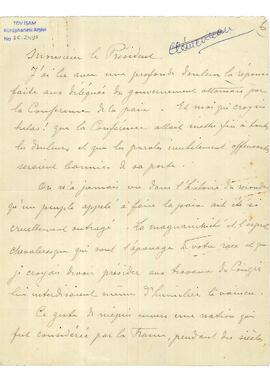 TDV İSAM
Kütüphanesi Arşivi
No
Clémenceau
Monsieur le Président
J'ai lu avec une profonde douleur la réponse
faite aux délégués du gouvernement ottoman par
la Conférence de la paix. Et moi qui croyais
hélas! que la Conférence allait mettre fin à toutes
les douleurs et que les paroles inutilement offensantes
seraient bannies de sa porte.
On n'a jamais vu dans l'histoire du monde
qu'un peuple appelé à faire la paix ait été si
cruellement outragé. La magnanimité et l'esprit
chevaleresque qui sont l'apanage de votre race et que
je croyais devoir présider aux travaux du Congrès
lui interdisaient même d'humilier le vaincu.
Ce geste de mépris envers une nation qui
fut considérée par la France, pendant des siècles,